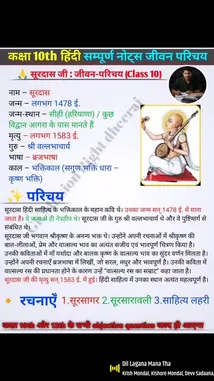 कक्षा 10th हिंदी सम्पूर्ण नोट्स जीवन परिचय
🙏 सूरदास जी : जीवन-परिचय (Class 10)
नाम – सूरदास
जन्म – लगभग 1478 ई.
जन्म-स्थान – सीही (हरियाणा) / कुछ
विद्वान आगरा के पास मानते हैं
मृत्यु – लगभग 1583 ई.
गुरु – श्री वल्लभाचार्य
भाषा – ब्रजभाषा
काल – भक्तिकाल (सगुण भक्ति धारा –
कृष्ण भक्ति)
✨ परिचय
सूरदास हिंदी साहित्य के भक्तिकाल के महान कवि थे। उनका जन्म सन् 1478 ई. में माना
जाता है। वे जन्म से ही नेत्रहीन थे। सूरदास जी के गुरु श्री वल्लभाचार्य थे और वे पुष्टिमार्ग से
संबंधित थे।
सूरदास जी भगवान श्रीकृष्ण के अनन्य भक्त थे। उन्होंने अपनी रचनाओं में श्रीकृष्ण की
बाल-लीलाओं, प्रेम और वात्सल्य भाव का अत्यंत सजीव एवं भावपूर्ण चित्रण किया है।
उनकी कविताओं में माँ यशोदा और बालक कृष्ण के वात्सल्य भाव का सुंदर वर्णन मिलता है।
उन्होंने अपनी रचनाएँ ब्रजभाषा में लिखीं, जो सरल, मधुर और भावपूर्ण है। उनकी कविता में
वात्सल्य रस की प्रधानता होने के कारण उन्हें "वात्सल्य रस का सम्राट" कहा जाता है।
सूरदास जी की मृत्यु सन् 1583 ई. में हुई। हिंदी साहित्य में उनका स्थान अत्यंत महत्वपूर्ण है।
🔹 रचनाएँ 1.सूरसागर 2.सूरसारावली 3.साहित्य लहरी
कक्षा 10th और 12th के सभी objective question जल्द ही आएगा
Dil Lagana Mana Tha
Krish Mondal, Kishore Mondal, Devv Sadaana,